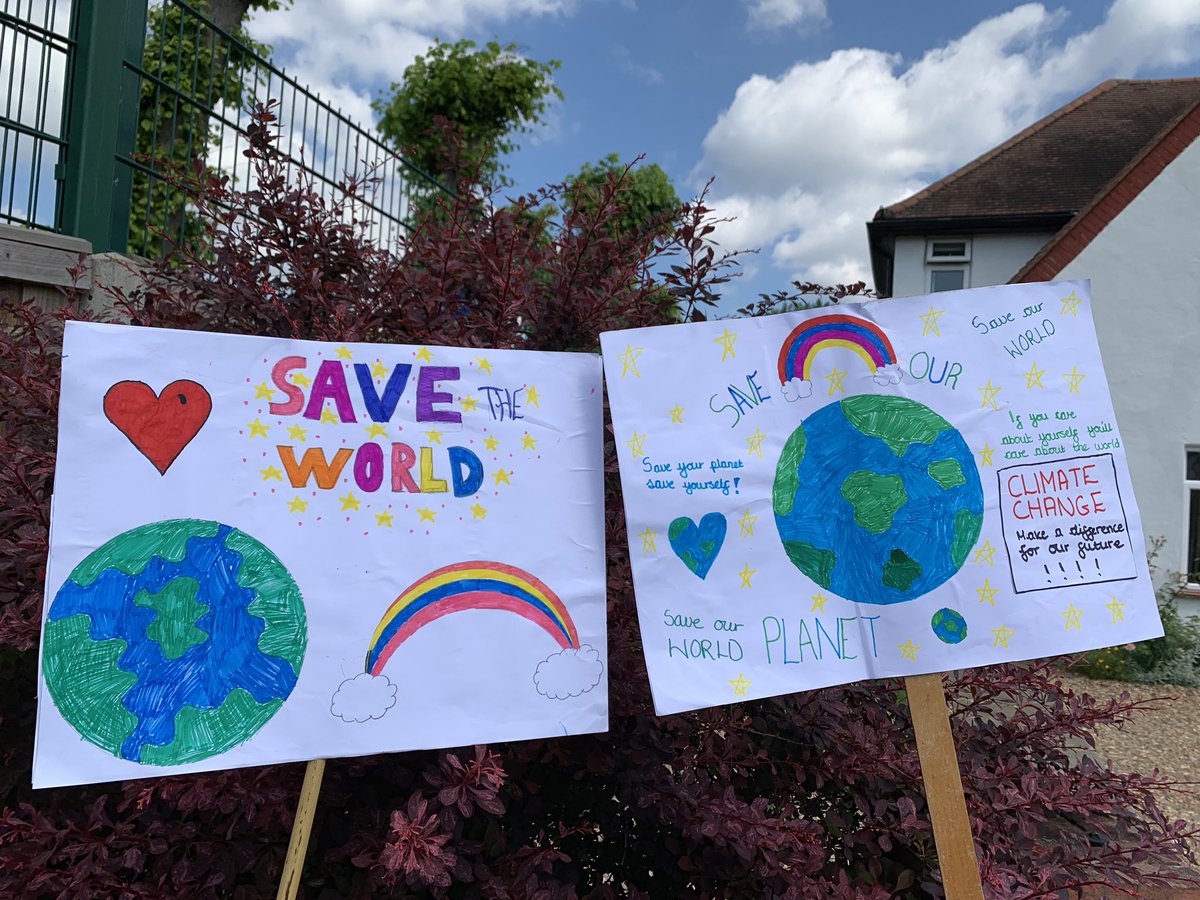 SAVE THE
WORLD
SAVE OUR
Save our
WORLD
If you care
about yourself you'll
care about the world
Save your planet
save yourself!
CLIMATE
CHANGE
Make a difference
for our future
! ! ! !
Save our
WORLD PLANET